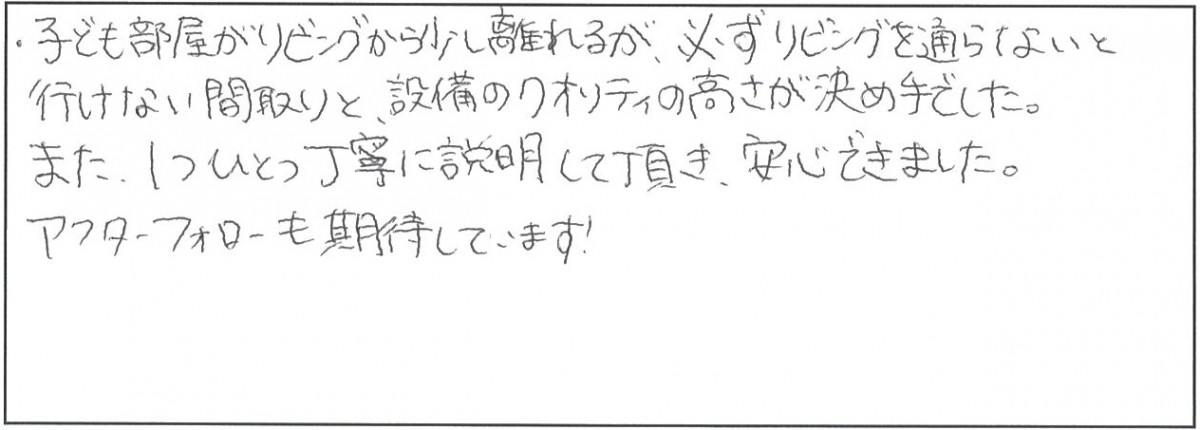 ・子ども部屋がリビングから少し離れるが、必ずリビングを通らないと
行けない間取りと、設備のクオリティの高さが決め手でした。
また、1つひとつ丁寧に説明して頂き、安心できました。
アフターフォローも期待しています!